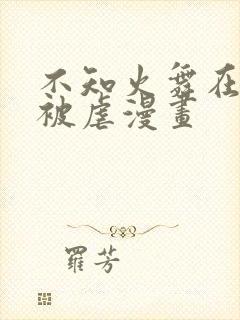 不知火舞在
被虐漫畫
羅芳